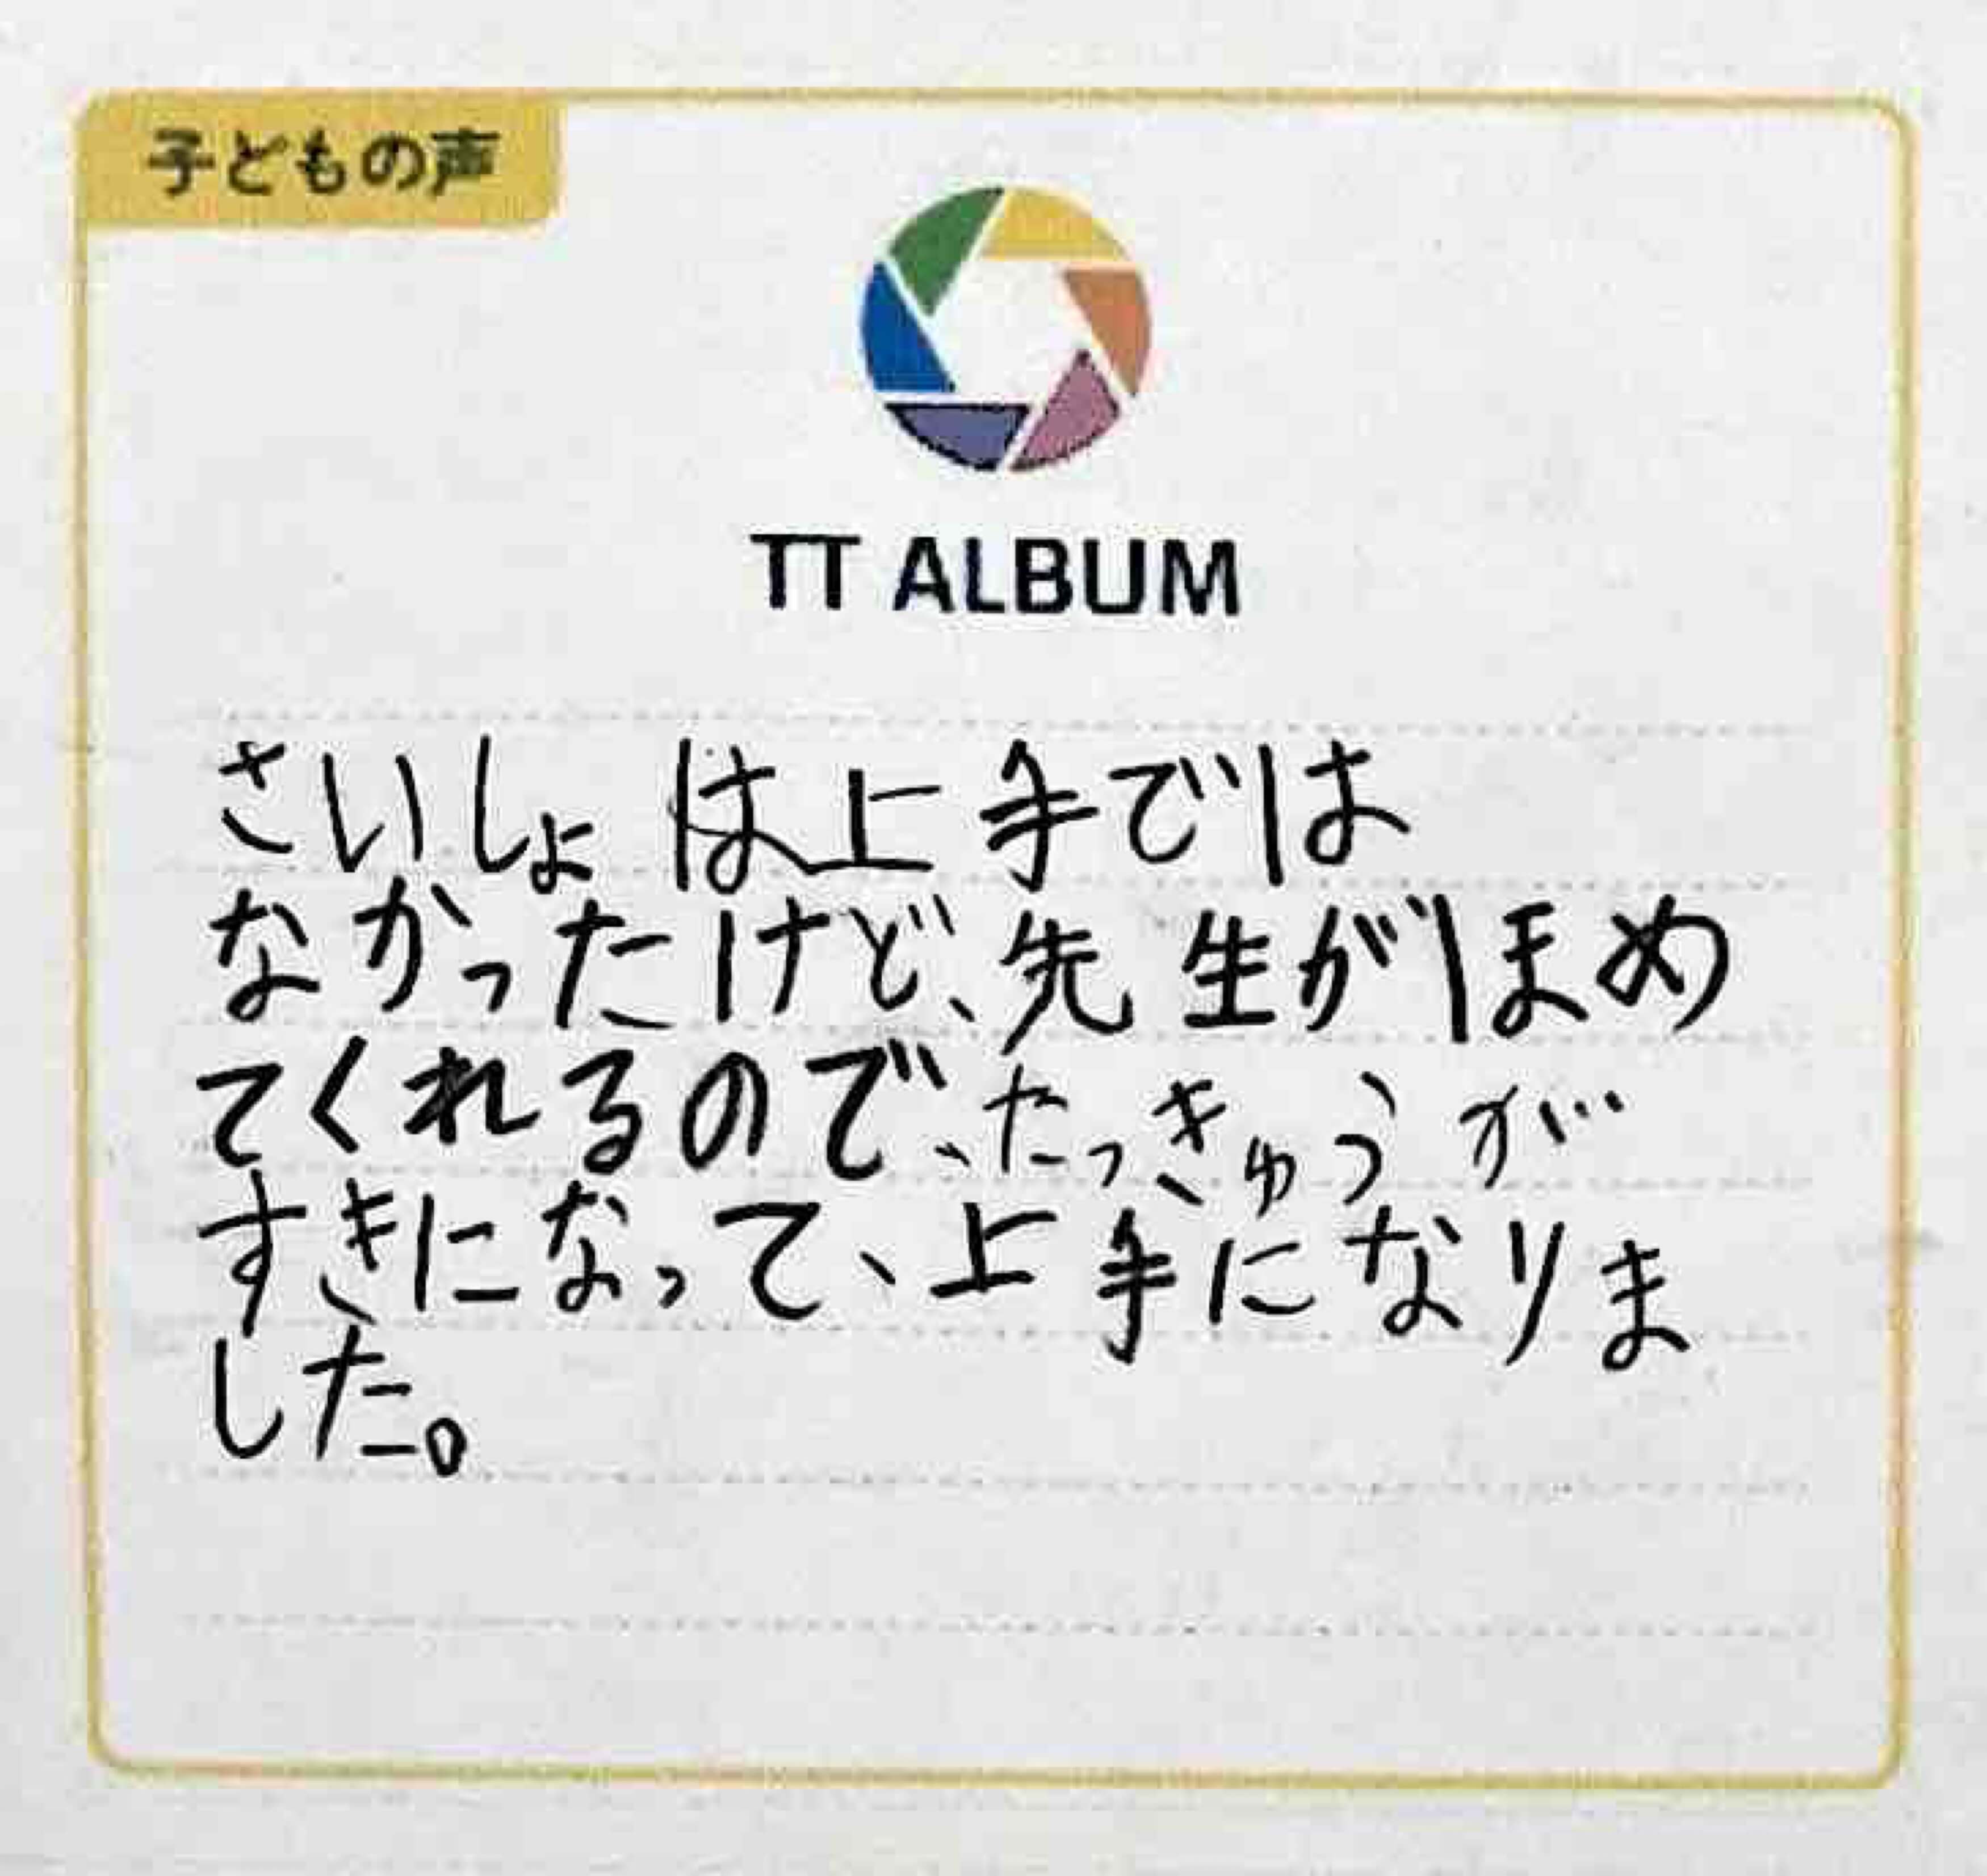 子どもの声
TT ALBUM
さいしょは上手では
なかったけど、先生がほめ
てくれるので、たっきゅうが
すきになって、上手になりま
した。